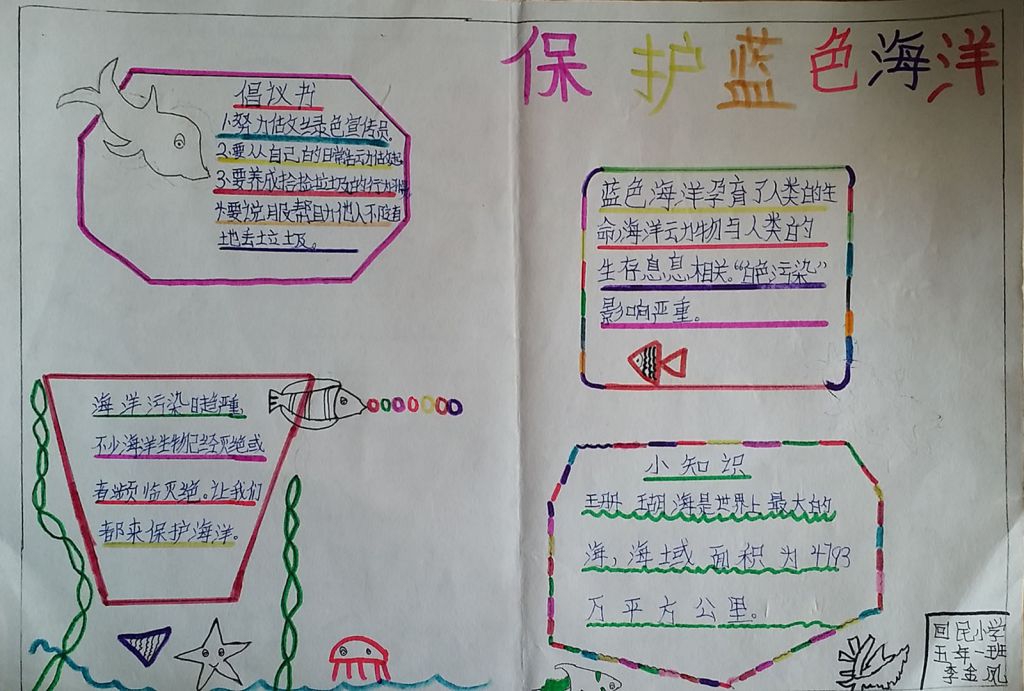 保护蓝色海洋
倡议书
1.努力估文兰录色宣传员。
2.要从人自己的日常活动估文起。
3.要养成拾捡垃圾的行为
4.要说服帮助他人不随意
地丢垃圾。
蓝色海洋孕育了人类的生
命,海洋动物与人类的
生存息息相关。“白色污染”
影响严重。
海洋污染日趋严重,
不少海洋生物已经灭绝或
者濒临灭绝。让我们
都来保护海洋。
小知识
珊瑚海是世界上最大的
海,海域面积为4793
万平方公里。
回民小学
五年一班
李金凤